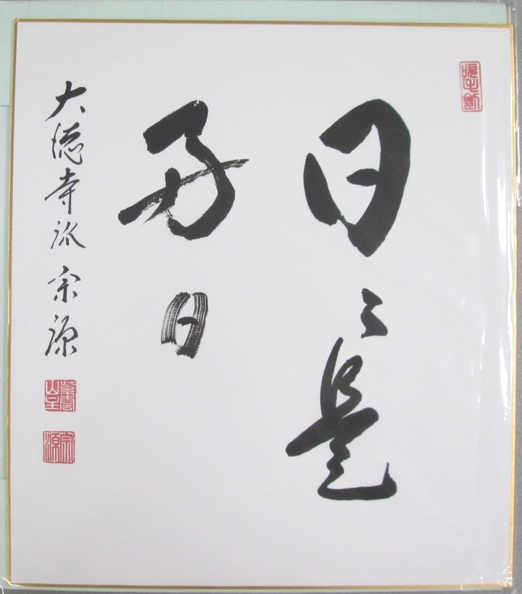 日々是
好日
大徳寺派 宗源